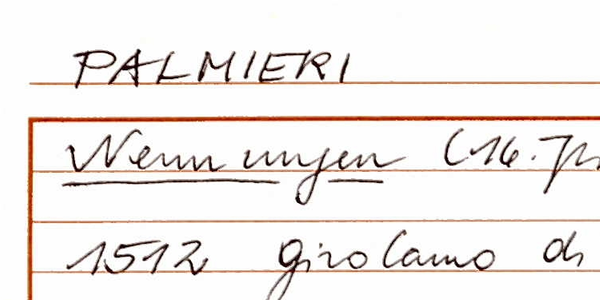 PALMIERI
Nennungen (16. Jh
1512 Girolamo di